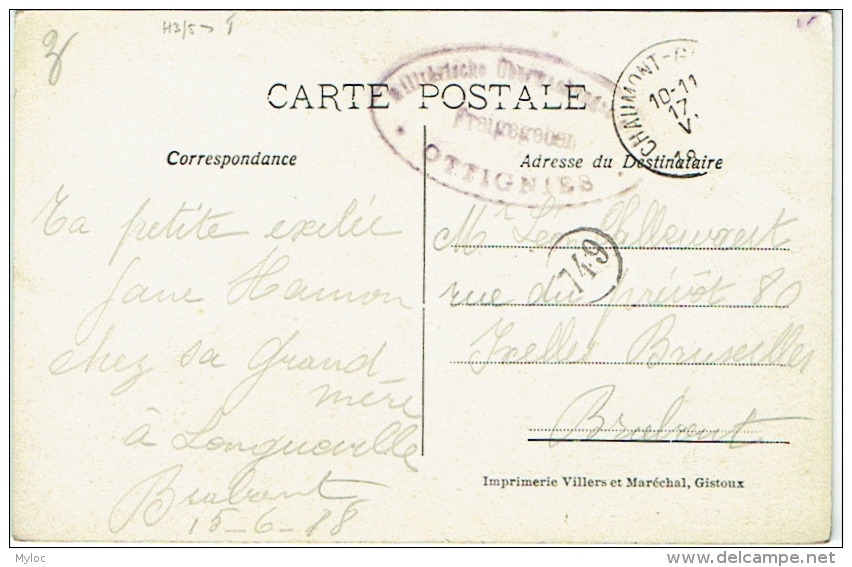 H3/5
Militärische Überwachungs
Freigegeben
OTTIGNIES
CHAUMONT-G
10-11
17
V.
18
CARTE POSTALE
Correspondance
Adresse du Destinataire
Ta petite exilée
Jane Hamon
chez sa Grand
mère
à Longueville
Brabant
15-6-18
Mr Léon
rue du prévôt 80
Ixelles Bruxelles
Brabant
749
Imprimerie Villers et Maréchal, Gistoux
Myloc
www.delcampe.net